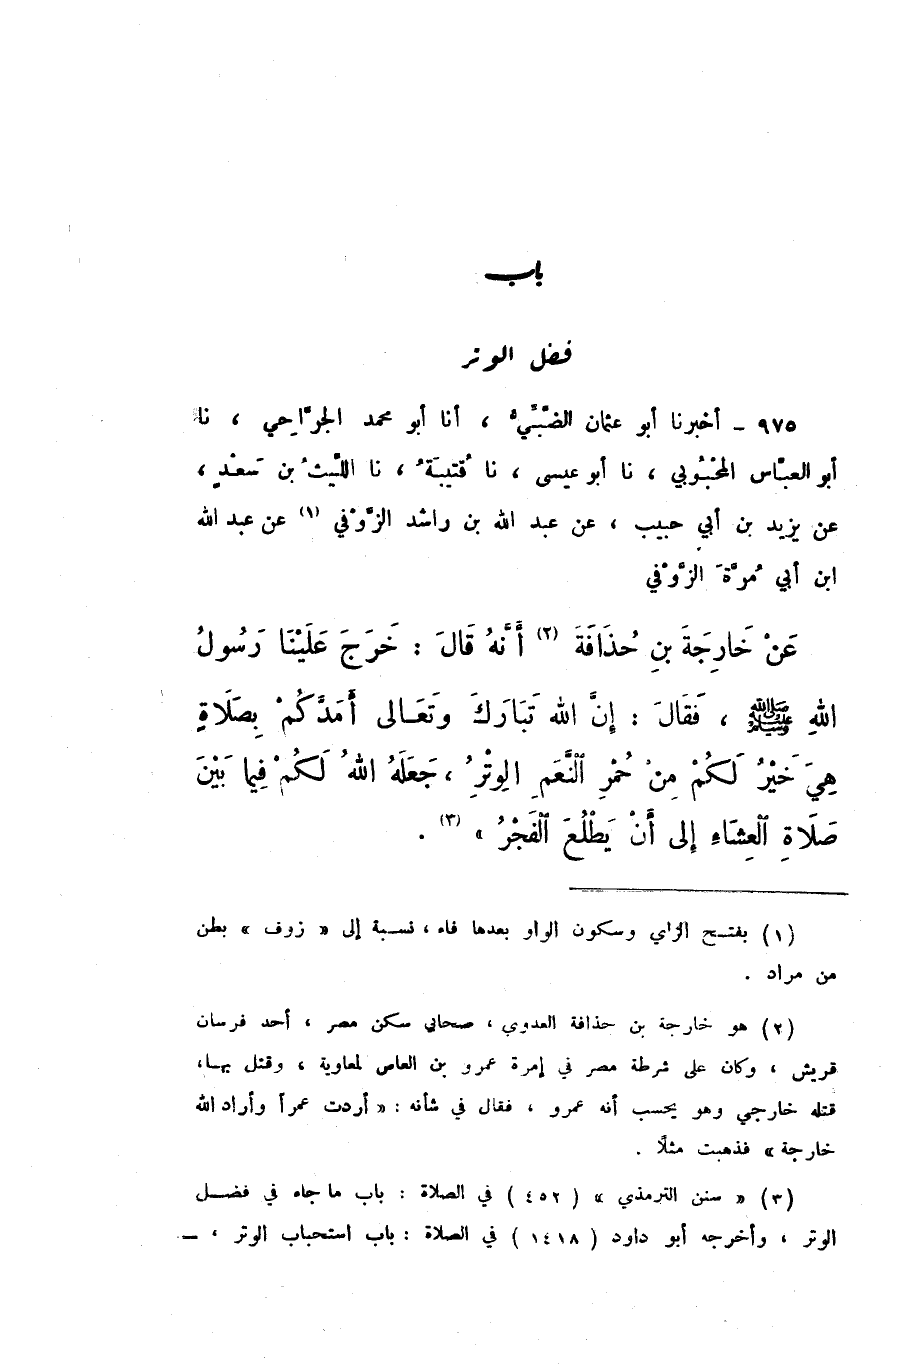 باب
فضل الوتر
٩٧٥ ـ أخبرنا أبو عثمان الضَّبِّيُّ ، أنا أبو محمد الجرَّاحي ، نا
أبو العبَّاس المحْبُوبي ، نا أبو عيسى ، نا قُتيبَةُ ، نا اللَّيثُ بن سَعْدٍ ،
عن يزيد بن أبي حبيب ، عن عبد الله بن راشد الزَّوْفي (١) عن عبد الله
ابن أبي مُرَّةَ الزَّوْفي
عَنْ خَارِجَةَ بنِ حُذَافَةَ (٢) أَنَّهُ قَالَ : خَرَجَ عَلَيْنَا رَسُولُ
اللهِ ﷺ ، فَقَالَ : إِنَّ الله تَبَارَكَ وَتَعَـالى أَمَدَّكُمْ بِصَلَاةٍ
هِيَ خَيْرٌ لَكُمْ مِنْ حُمْرِ ٱلنَّعَمِ الوِتْرِ ، جَعَلَهُ اللهُ لَكُمْ فِيما بَيْنَ
صَلَاةِ ٱلعِشَاءِ إِلى أَنْ يَطْلُعَ ٱلفَجْرُ » (٣) .
(١) بفتـح الزاي وسكون الواو بعدها فاء ، نسـبة إلى « زوف » بطن
من مراد .
(٢) هو خارجة بن حذافة العدوي ، صحابي سكن مصر ، أحد فرسان
قريش ، وكان على شرطة مصر في إمرة عمرو بن العاص لمعاوية ، وقتل بهـا ،
قتله خارجي وهو يحسب أنه عمرو ، فقال في شأنه : « أردت عمراً وأراد الله
خارجة » فذهبت مثلاً .
(٣) « سنن الترمذي » ( ٤٥٢ ) في الصلاة : باب ما جاء في فضـل
الوتر ، وأخرجه أبو داود ( ١٤١٨ ) في الصلاة : باب استحباب الوتر ، ـ